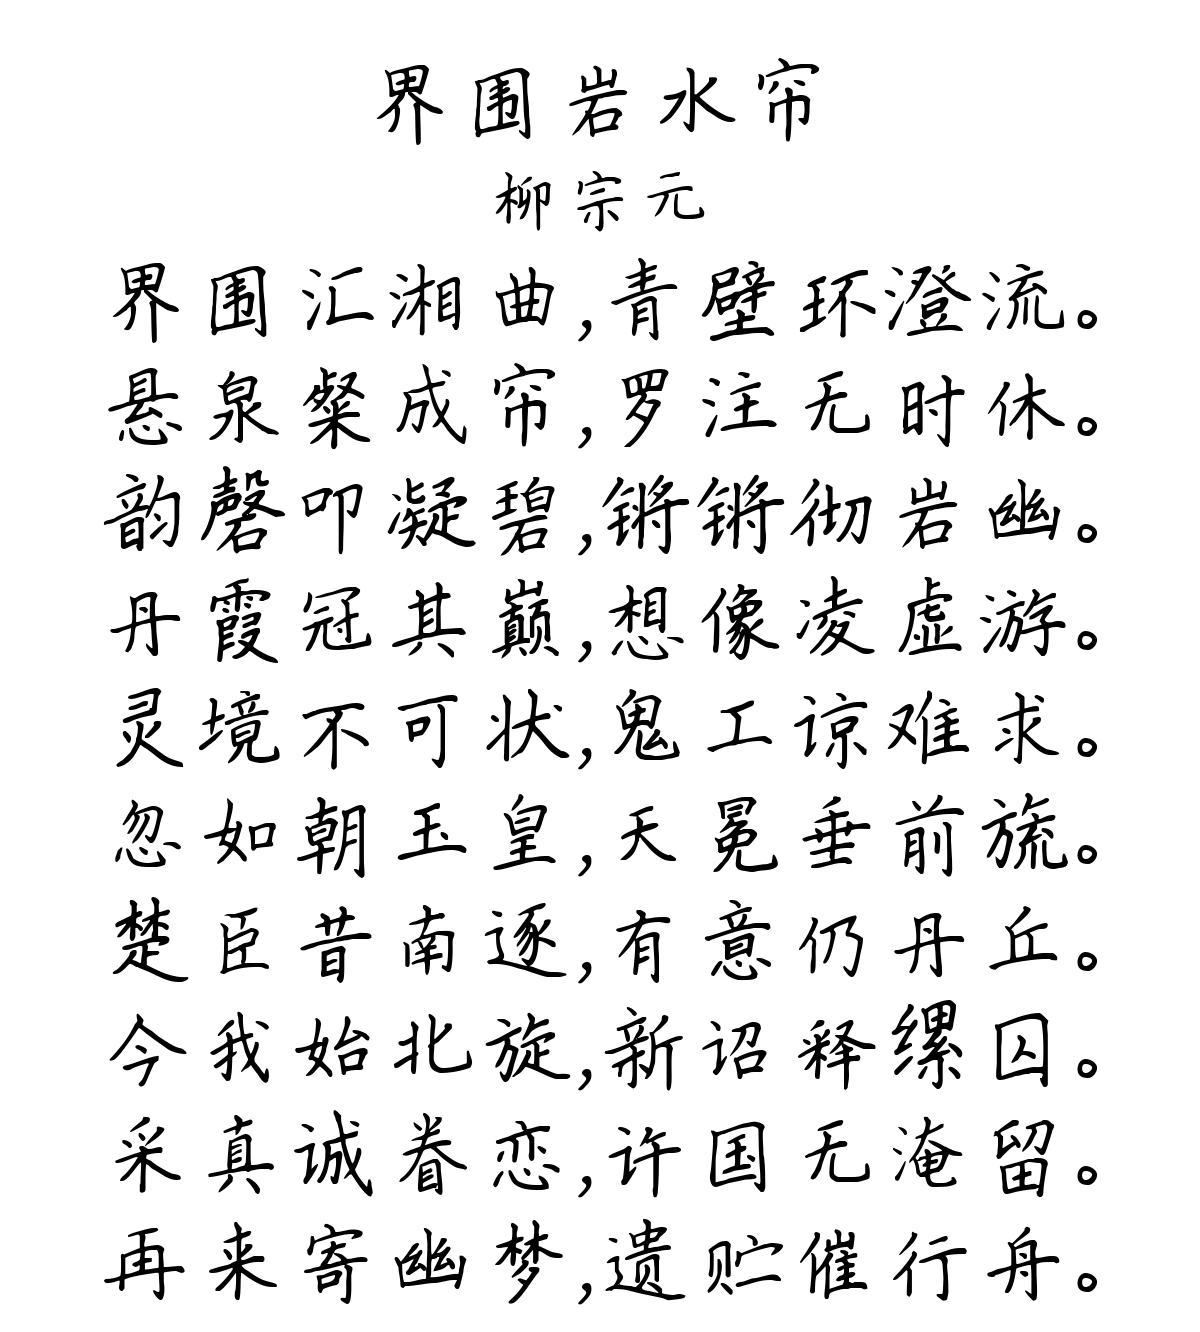 界围岩水帘
柳宗元
界围汇湘曲,青壁环澄流。
悬泉粲成帘,罗注无时休。
韵磬叩凝碧,锵锵彻岩幽。
丹霞冠其巅,想像凌虚游。
灵境不可状,鬼工谅难求。
忽如朝玉皇,天冕垂前旒。
楚臣昔南逐,有意仍丹丘。
今我始北旋,新诏释缧囚。
采真诚眷恋,许国无淹留。
再来寄幽梦,遗贮催行舟。